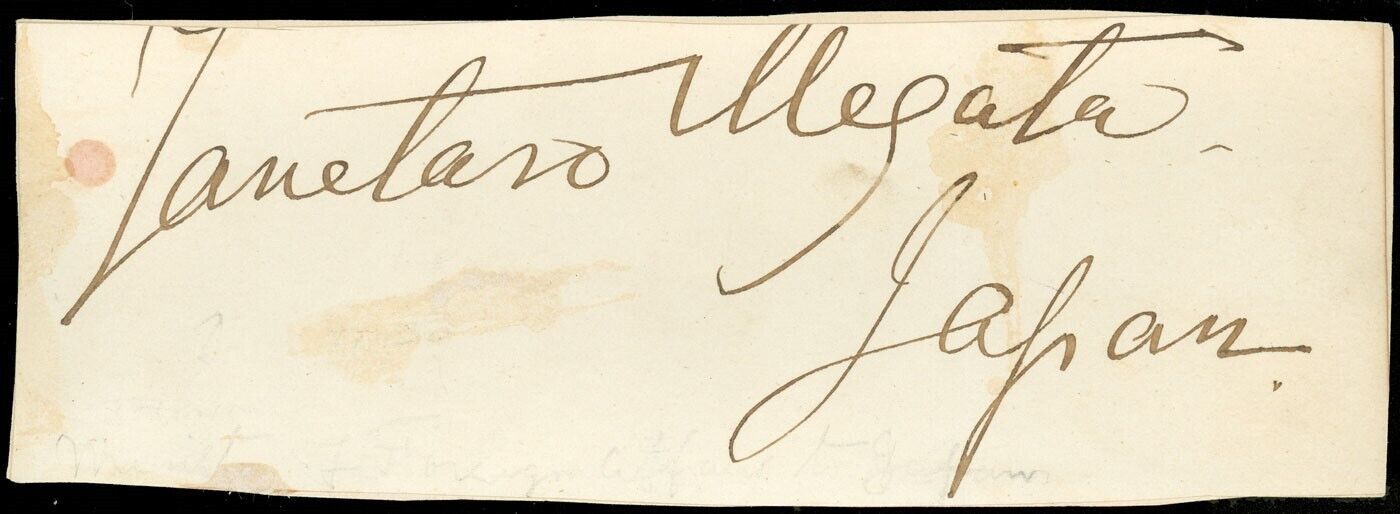 Tanetaro Megata
Japan.
Minister of Foreign Affairs to Japan